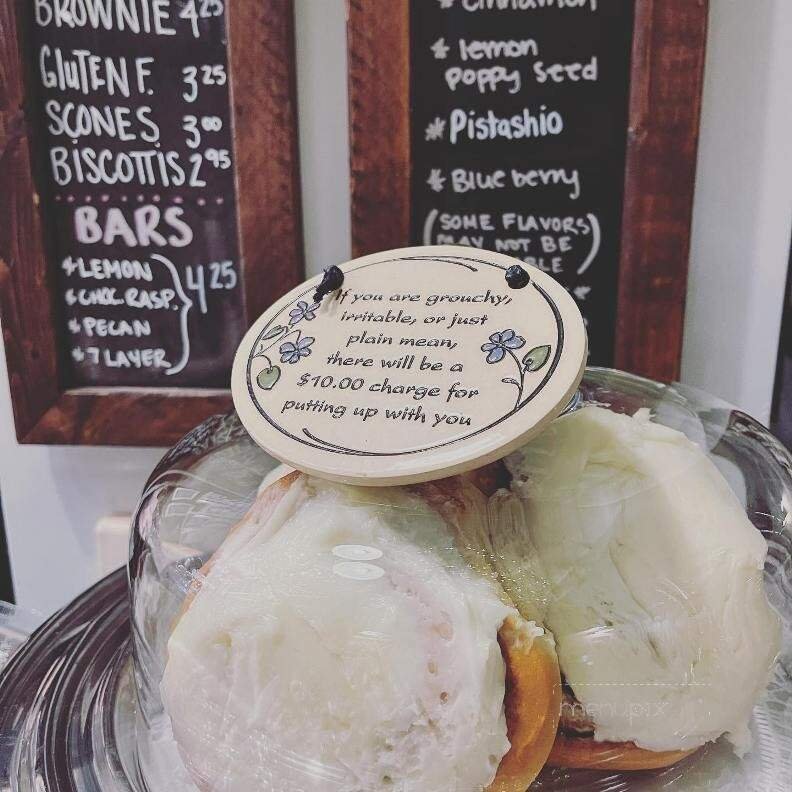 BROWNIE 4 25
GLUTEN F. 3 25
SCONES 3 00
BISCOTTIS 2 95
BARS
* LEMON
* CHOC. RASP.
* PECAN
* 7 LAYER
4 25
* cinnamon
* lemon
poppy seed
* Pistashio
* Blueberry
(SOME FLAVORS
MAY NOT BE
If you are grouchy,
irritable, or just
plain mean,
there will be a
$10.00 charge for
putting up with you
menupix